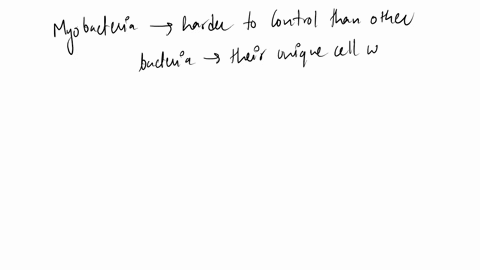 Myobacteria → harder to control than other
bacteria → their unique cell w